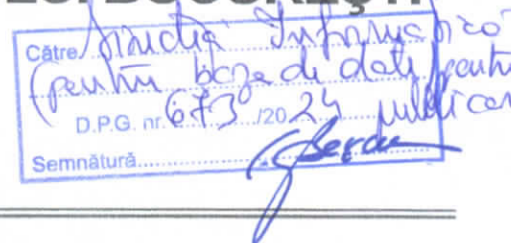 BUCUREȘTI
Către Direcția Informatică
(pentru baza de date pentru
D.P.G. nr. 673 /20 24 publicare
Semnătură